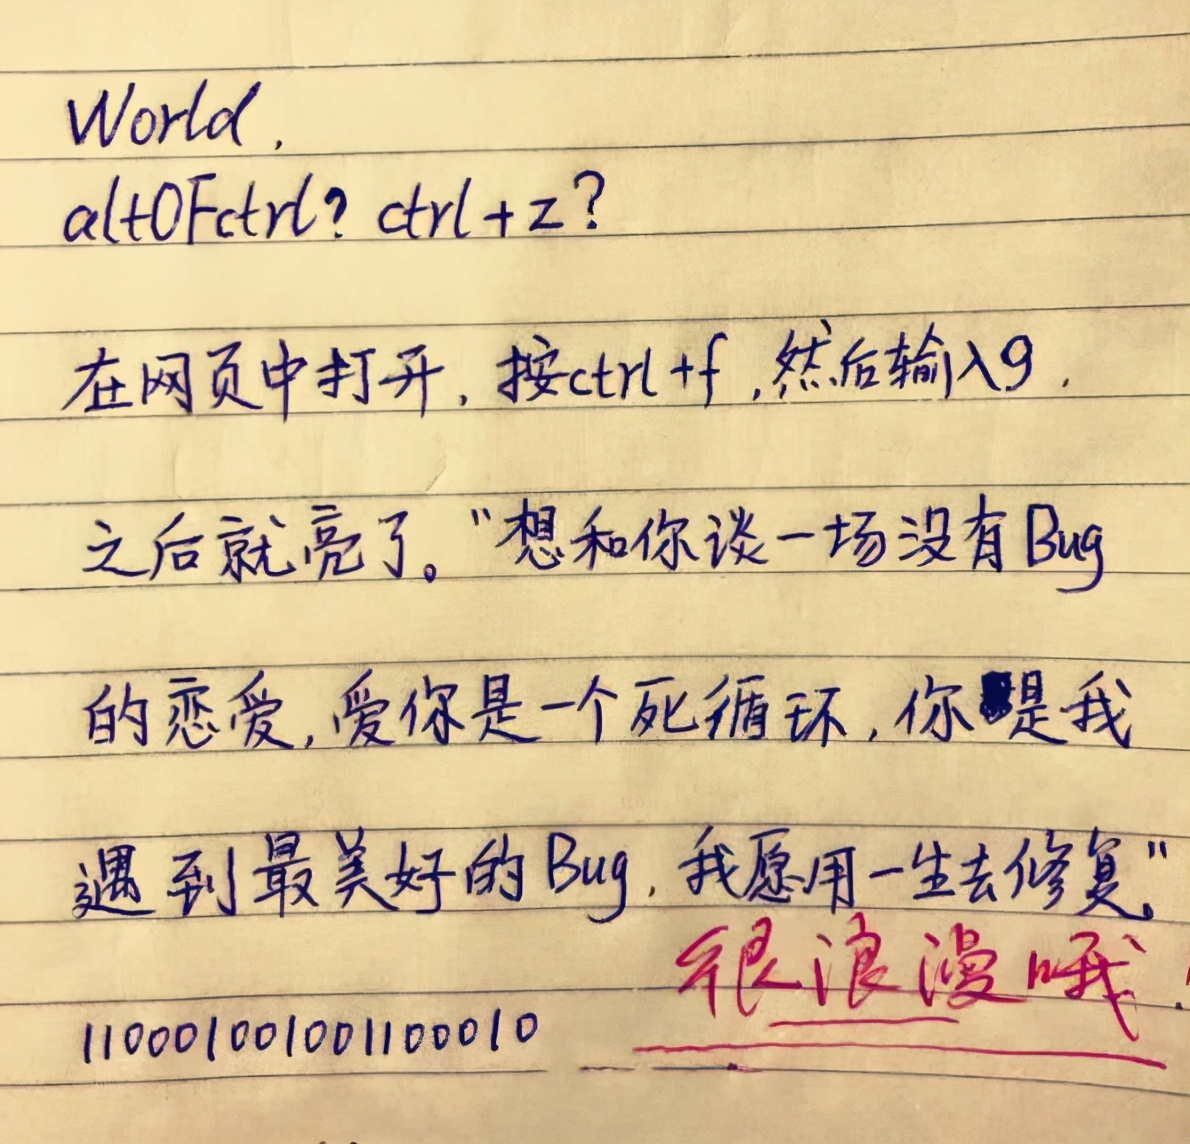 World,
altOFctrl? ctrl+z?
在网页中打开,按ctrl+f,然后输入9,
之后就亮了。“想和你谈一场没有Bug
的恋爱,爱你是一个死循环,你是我
遇到最美好的Bug,我愿用一生去修复。”
很浪漫哦!
110001001001100010